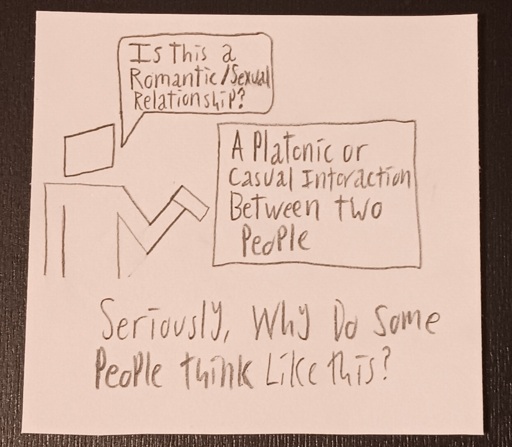 Is this a
Romantic/Sexual
Relationship?
A Platonic or
Casual Interaction
Between two
People
Seriously, Why Do Some
People think Like this?